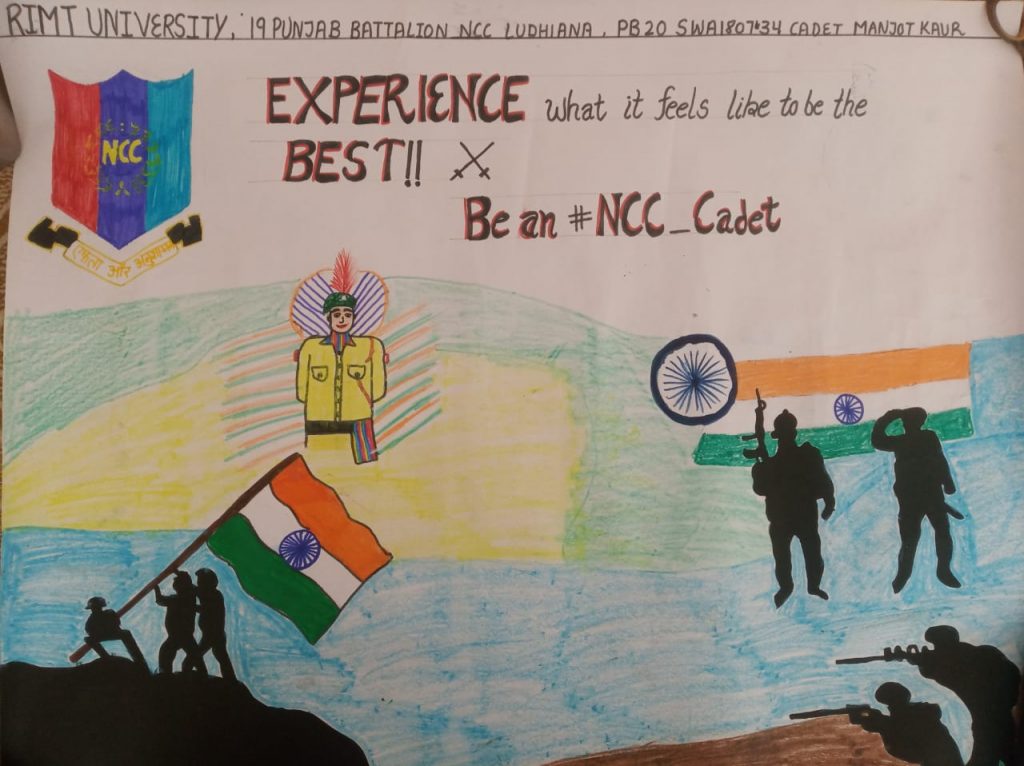 RIMT UNIVERSITY, 19 PUNJAB BATTALION NCC LUDHIANA, PB20 SWA1807434 CADET MANJOT KAUR
NCC
एकता और अनुशासन
EXPERIENCE what it feels like to be the
BEST!!
Be an #NCC_Cadet